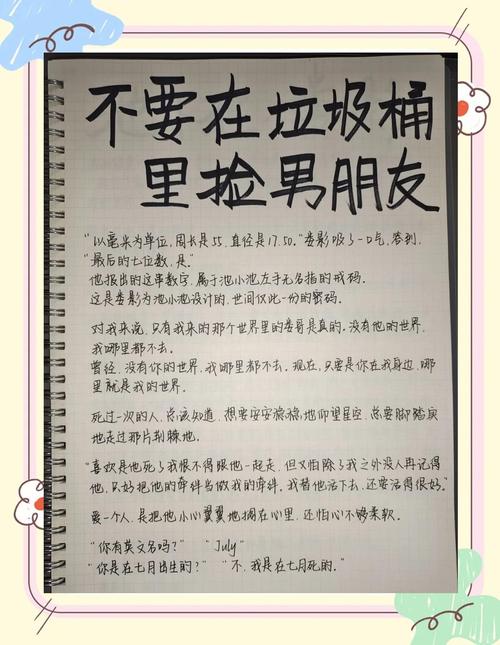 不要在垃圾桶
里捡男朋友
"以毫米为单位,周长是55,直径是17.50。"娄影吸了一口气,答到,
"最后的七位数,是。"
他报出的这串数字,属于池小池左手无名指的戒码。
这是娄影为池小池设计的,世间仅此一份的密码。
对我来说,只有我来的那个世界里的娄哥是真的。没有他的世界,
我哪里都不去。
曾经,没有你的世界,我哪里都不去。现在,只要是你在我身边,哪
里就是我的世界。
死过一次的人,总该知道,想要安安稳稳地仰望星空,总要脚踏实
地走过那片荆棘地。
"喜欢是他死了我恨不得跟他一起走,但又怕除了我之外没人再记得
他,只好把他的零件当做我的零件。我替他活下去,还要活得很好。"
爱一个人,是把他小心翼翼地搁在心里,还怕心不够柔软。
"你有英文名吗?" "July"
"你是在七月出生的?" "不,我是在七月死的。"